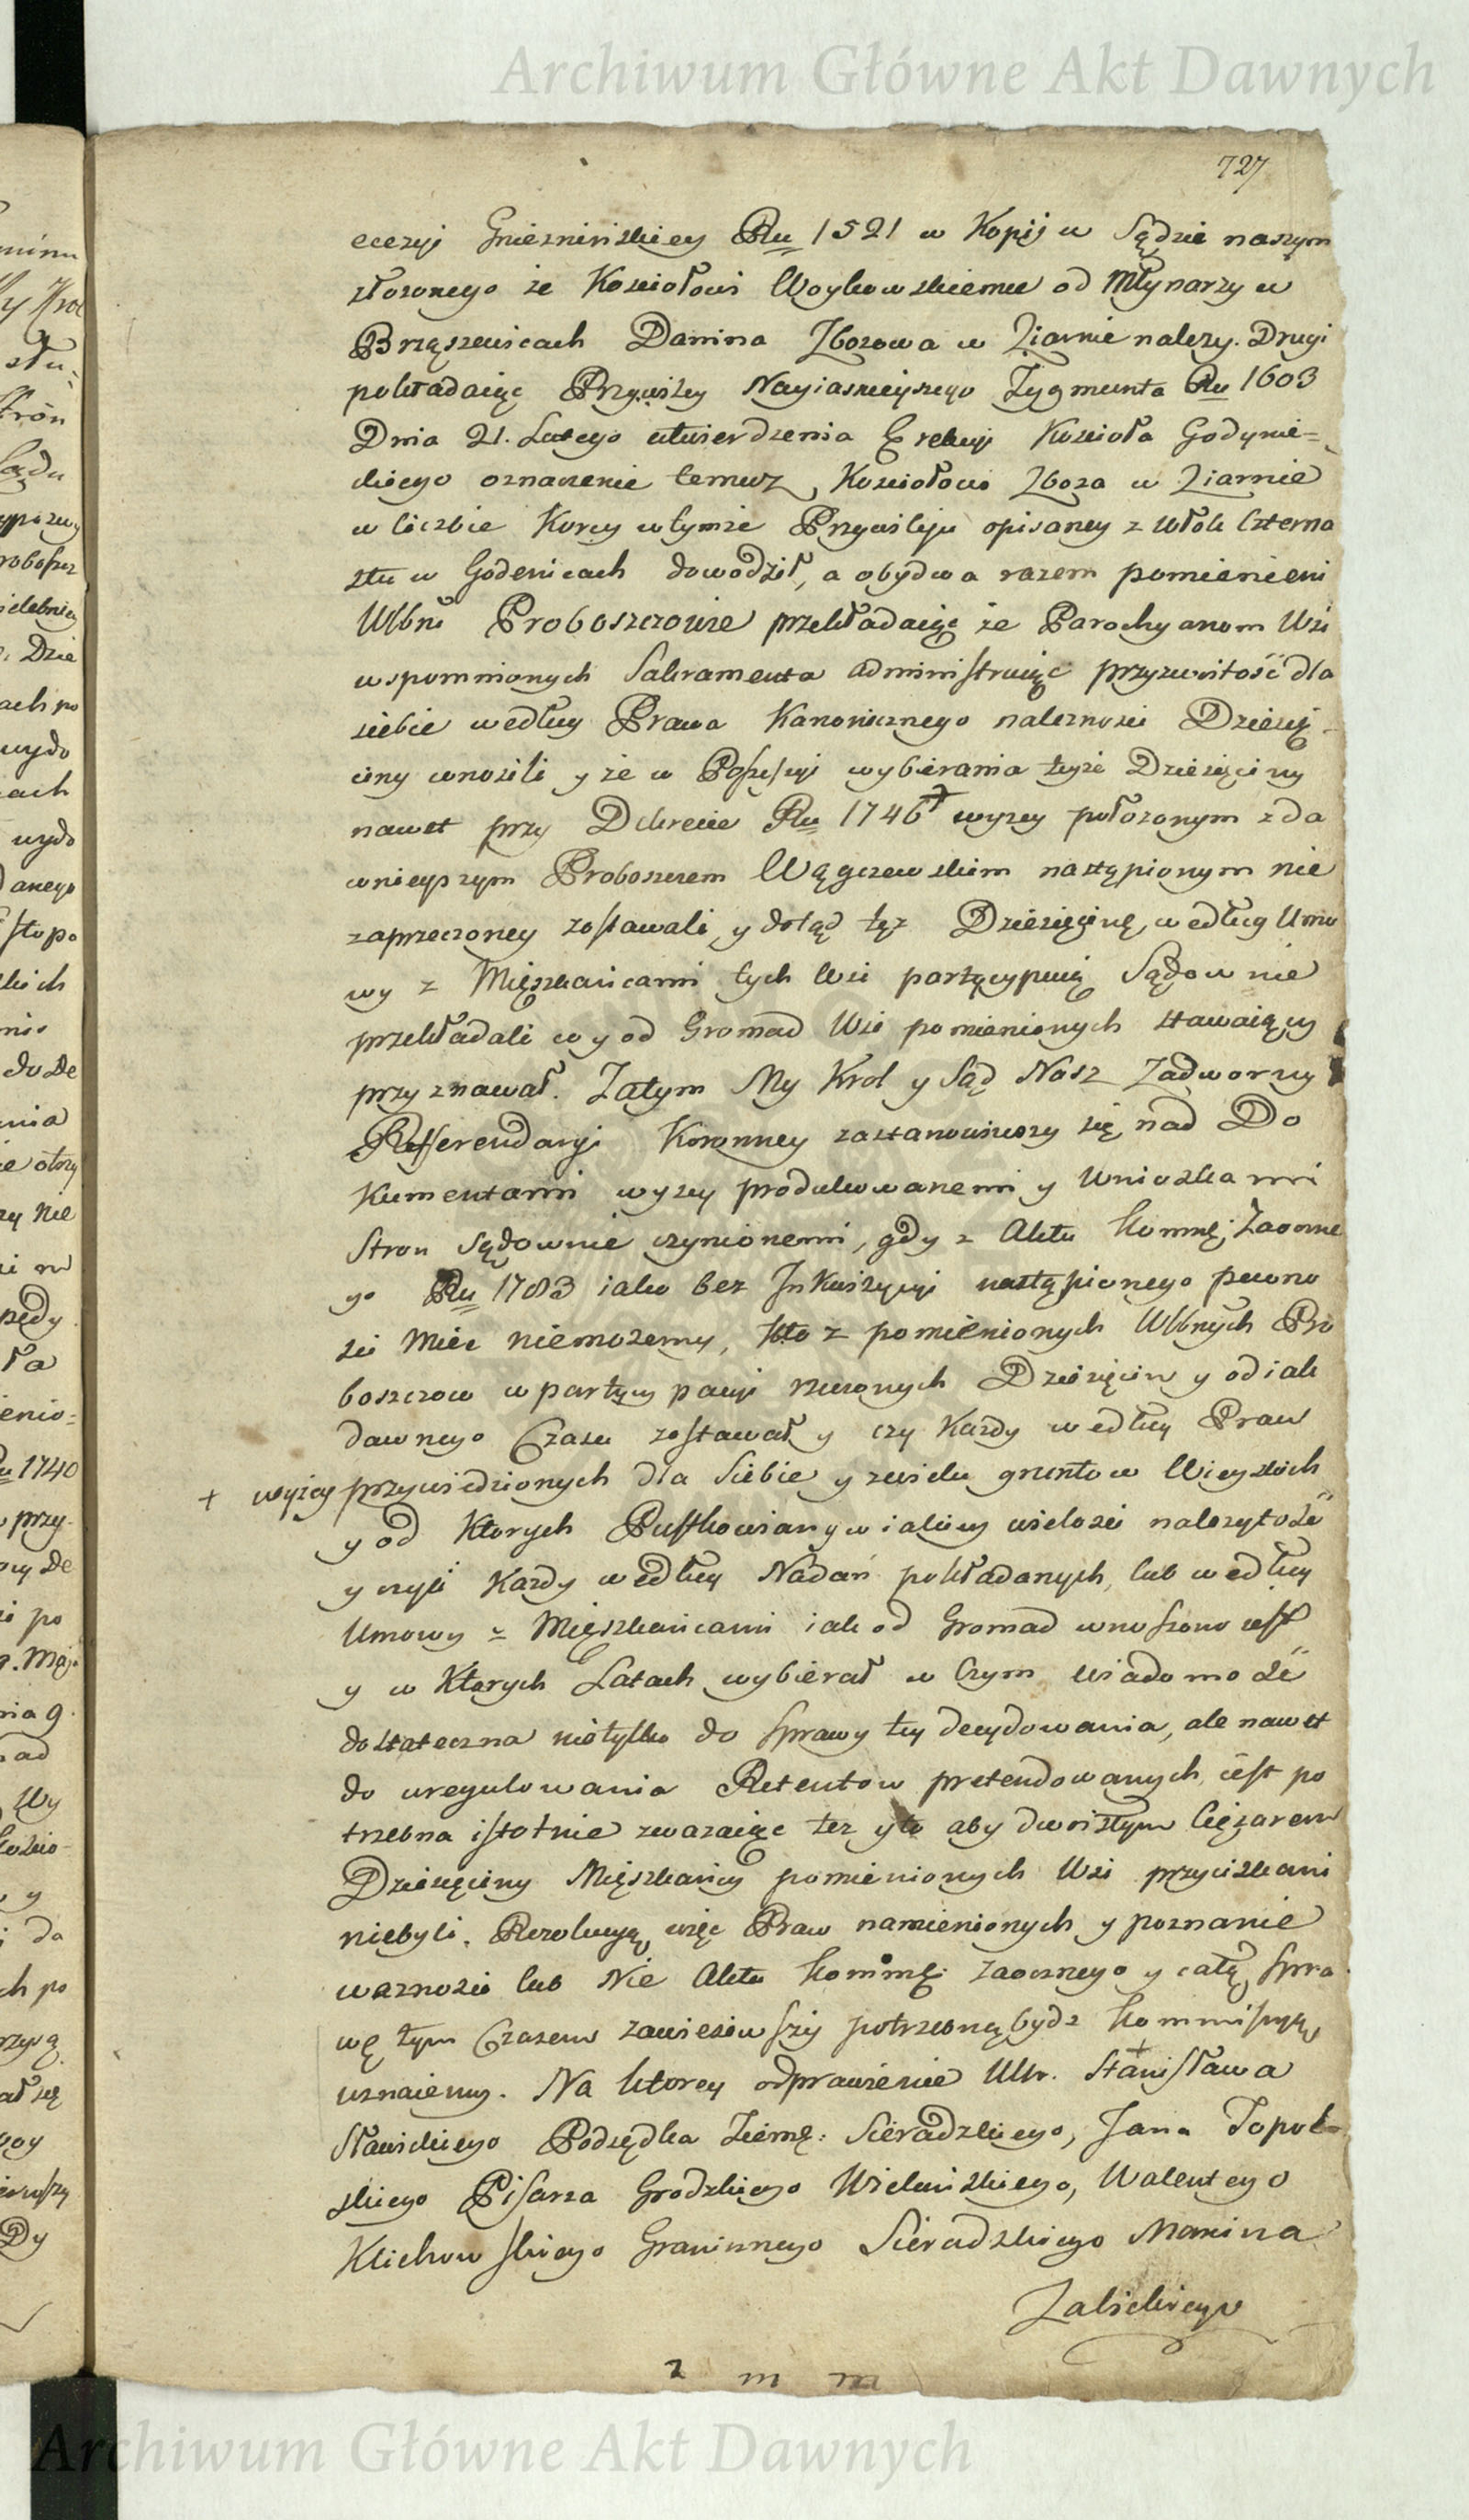 Archiwum Główne Akt Dawnych
727
ecezyi Gnieznińskiey Ru 1521 w Kopij w Sądzie naszym
złozonego że Kosciołowi Woykowskiemu od Młynarzy w
Brząszewicach Danina Zbozowa w Ziarnie nalezy. Drugi
pokładaiąc Przywiley Nayiasnieyszego Zygmunta Ru 1603
Dnia 21. Lutego utwierdzenia Erekcyi Koscioła Godynic=
kiego oznaczenie temuz Kosciołowi Zboza w Ziarnie
w liczbie Korcy w tymże Przywileju opisaney z Włok Czterna
stu w Godenicach dowodził, a obydwa razem pomienieni
Wbni Proboszczowie przekładaiąc że Parochyanom Wsi
wspomnionych Sakramenta administruiąc przyzwoitość dla
siebie według Prawa Kanonicznego nalezności Dziesię-
ciny wnosili y że w Possessyi wybierania teyże Dziesięciny
nawet przy Dekrecie Ru 1746 + wyzey połozonym z da
wnieyszym Proboszczem Wągczewskim nastąpionym nie
zaprzeczoney zostawali y dotąd tęż Dziesięcinę według Umo
wy z Mięszkańcami tych Wsi partycypuią Sądownie
przekładali co y od Gromad Wsi pomienionych stawaiący
przyznawał. Zatym My Krol y Sąd Nasz Zadworny
Refferendaryi Koronney zastanowiwszy się nad Do
kumentami wyzey produkowanemi y Wnioskami
Stron Sądownie czynionemi, gdy z Aktu Kommiss: Zaoczne
go Ru 1783 iako bez Inkwizycyi nastąpionego pewno
sci mieć niemozemy, kto z pomienionych Wbnych Pro
boszczow w partycypacyi rzeczonych Dziesięcin y od iak
dawnego Czasu zostawał y czy Kazdy według Praw
+ wyżey przywiedzionych dla Siebie y z wielu gruntow Wieyskich
y od Ktorych Pustkowian y w iakiey wielosci nalezytość
y czyli Kazdy według Nadań pokładanych, lub według
Umowy z Mięszkańcami iak od Gromad wnoszono iest
y w Ktorych Latach wybierał w Czym wiadomość
dostateczna nietylko do Sprawy tey decydowania, ale nawet
do uregulowania Retentow pretendowanych iest po
trzebna istotnie zwazaiąc też y to aby dwoistym Cięzarem
Dziesięciny Mięszkańcy pomienionych Wsi przyciskani
niebyli. Rezolucyą więc Praw namienionych y poznanie
waznosci lub Nie Aktu Kommiss: zaocznego y całą Spra
wę tym Czasem zawiesiwszy potrzebną bydz Kommissyą
uznaiemy. Na ktorey odprawienie Ur. + Stanisława
Stawickiego Podsędka Ziems: Sieradzkiego, Jana Topol=
skiego Pisarza Grodzkiego Wieluńskiego, Walentego
Klichowskiego Granicznego Sieradzkiego Marcina
Zabickiego
2 m m
Archiwum Główne Akt Dawnych